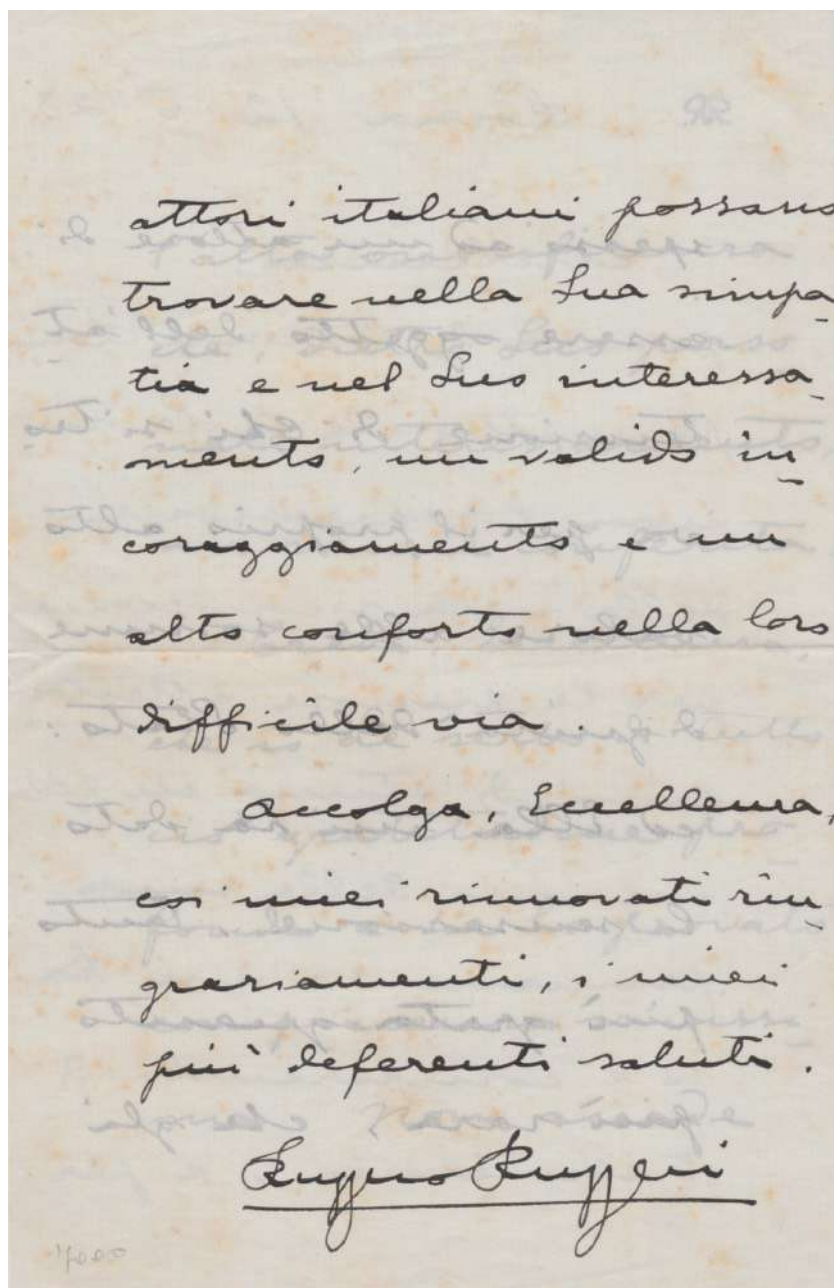 attori italiani possano
trovare nella Sua simpa-
tia e nel Suo interessa-
mento, un valido in-
coraggiamento e un
alto conforto nella loro
difficile via.
Accolga, Eccellenza,
coi miei rinnovati rin-
graziamenti, i miei
più deferenti saluti.
Ruggero Ruggeri